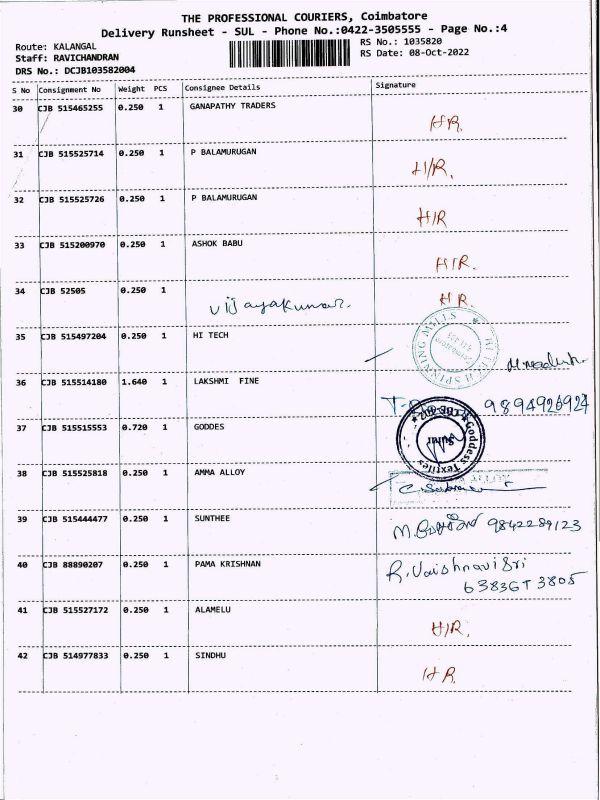 THE PROFESSIONAL COURIERS, Coimbatore
Delivery Runsheet - SUL - Phone No.:0422-3505555 - Page No.:4
Route: KALANGAL
RS No.: 1035820
Staff: RAVICHANDRAN
RS Date: 08-Oct-2022
DRS No.: DCJB103582004
S No Consignment No Weight PCS Consignee Details Signature
30 CJB 515465255 0.250 1 GANAPATHY TRADERS
HR.
31 CJB 515525714 0.250 1 P BALAMURUGAN
H/R.
32 CJB 515525726 0.250 1 P BALAMURUGAN
H/R
33 CJB 515200970 0.250 1 ASHOK BABU
H/R.
34 CJB 52505 0.250 1
Vijayakumar. HR.
35 CJB 515497204 0.250 1 HI TECH
HI TECH SPINNING MILLS
36 CJB 515514180 1.640 1 LAKSHMI FINE
9894926924
37 CJB 515515553 0.720 1 GODDES
Goddess Textiles
38 CJB 515525818 0.250 1 AMMA ALLOY
39 CJB 515444477 0.250 1 SUNTHEE
9842289123
40 CJB 88890207 0.250 1 PAMA KRISHNAN
R. Vaishnavi Sri
41 CJB 515527172 0.250 1 ALAMELU
H/R.
42 CJB 514977833 0.250 1 SINDHU
HR